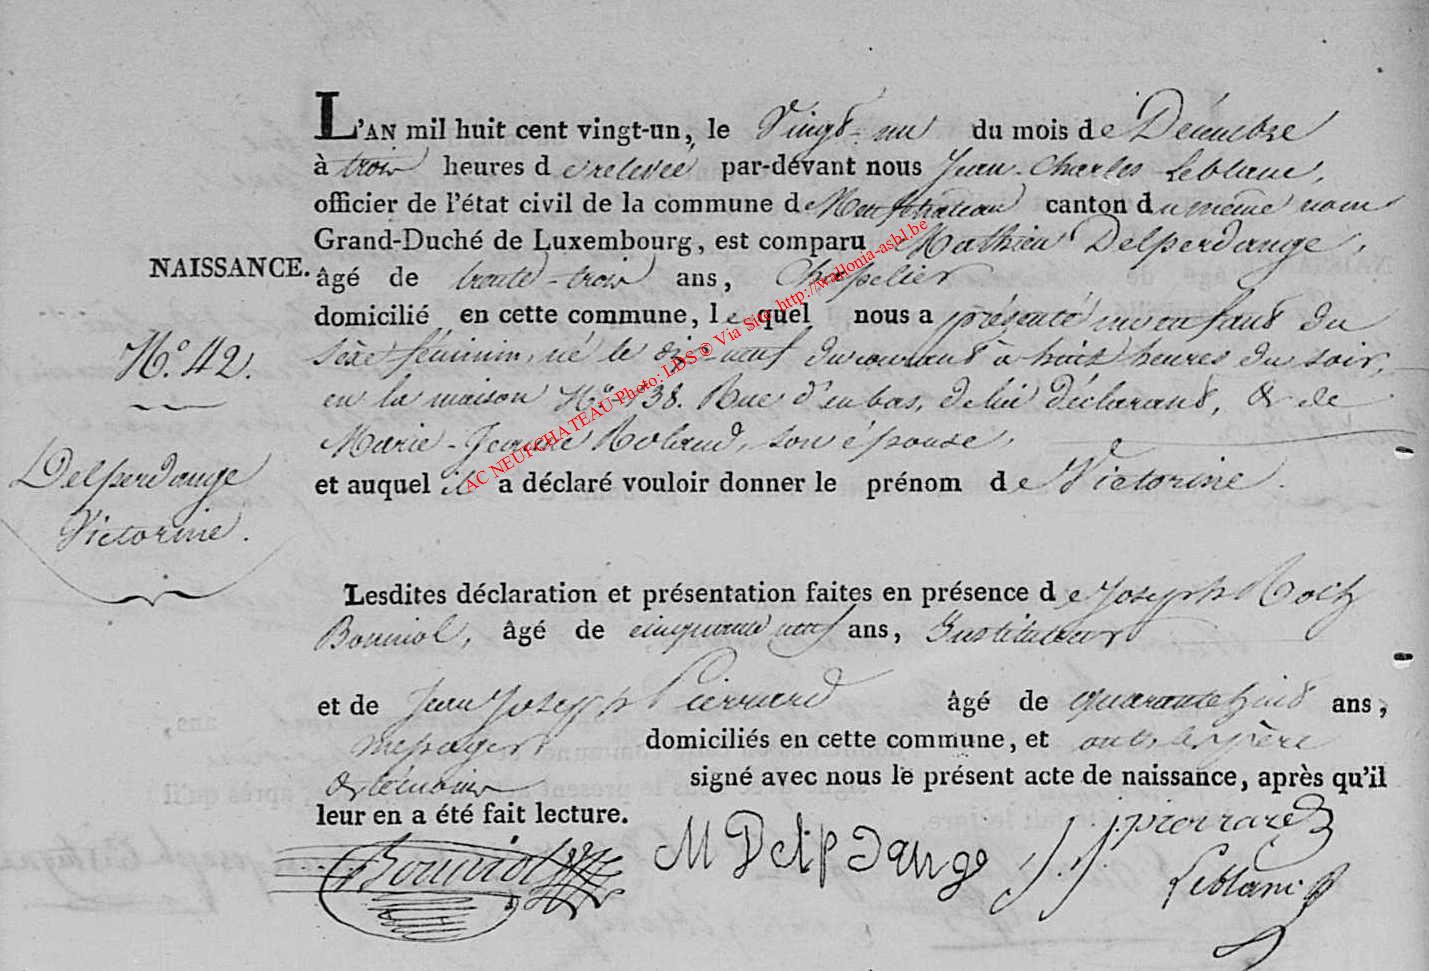 L'AN mil huit cent vingt-un, le Vingt-un du mois de Décembre
à trois heures de relevée par-devant nous Jean-Charles Leblanc,
officier de l'état civil de la commune de Neufchateau canton du même nom
Grand-Duché de Luxembourg, est comparu Mathieu Delperdange,
NAISSANCE. âgé de trente-trois ans, Chapelier
domicilié en cette commune, lequel nous a présenté un enfant du
N.º 42. Sèxe féminin, né le dix-neuf du courant à huit heures du soir,
en la maison Nº 138. Rue d'en bas, de lui déclarant, & de
Marie-Jeanne Roland, son épouse,
Delperdange et auquel il a déclaré vouloir donner le prénom de Victorine.
Victorine.
Lesdites déclaration et présentation faites en présence de Joseph Roch
Bouniol, âgé de cinquante neuf ans, Instituteur
et de Jean Joseph Pierrard âgé de quarante huit ans,
messager domiciliés en cette commune, et ont les père
& témoins signé avec nous le présent acte de naissance, après qu'il
leur en a été fait lecture.
Bouniol M Delpdange J. J. pierrard
Leblanc
AC NEUFCHATEAU Photo: LDS © Via Site http://wallonia-asbl.be